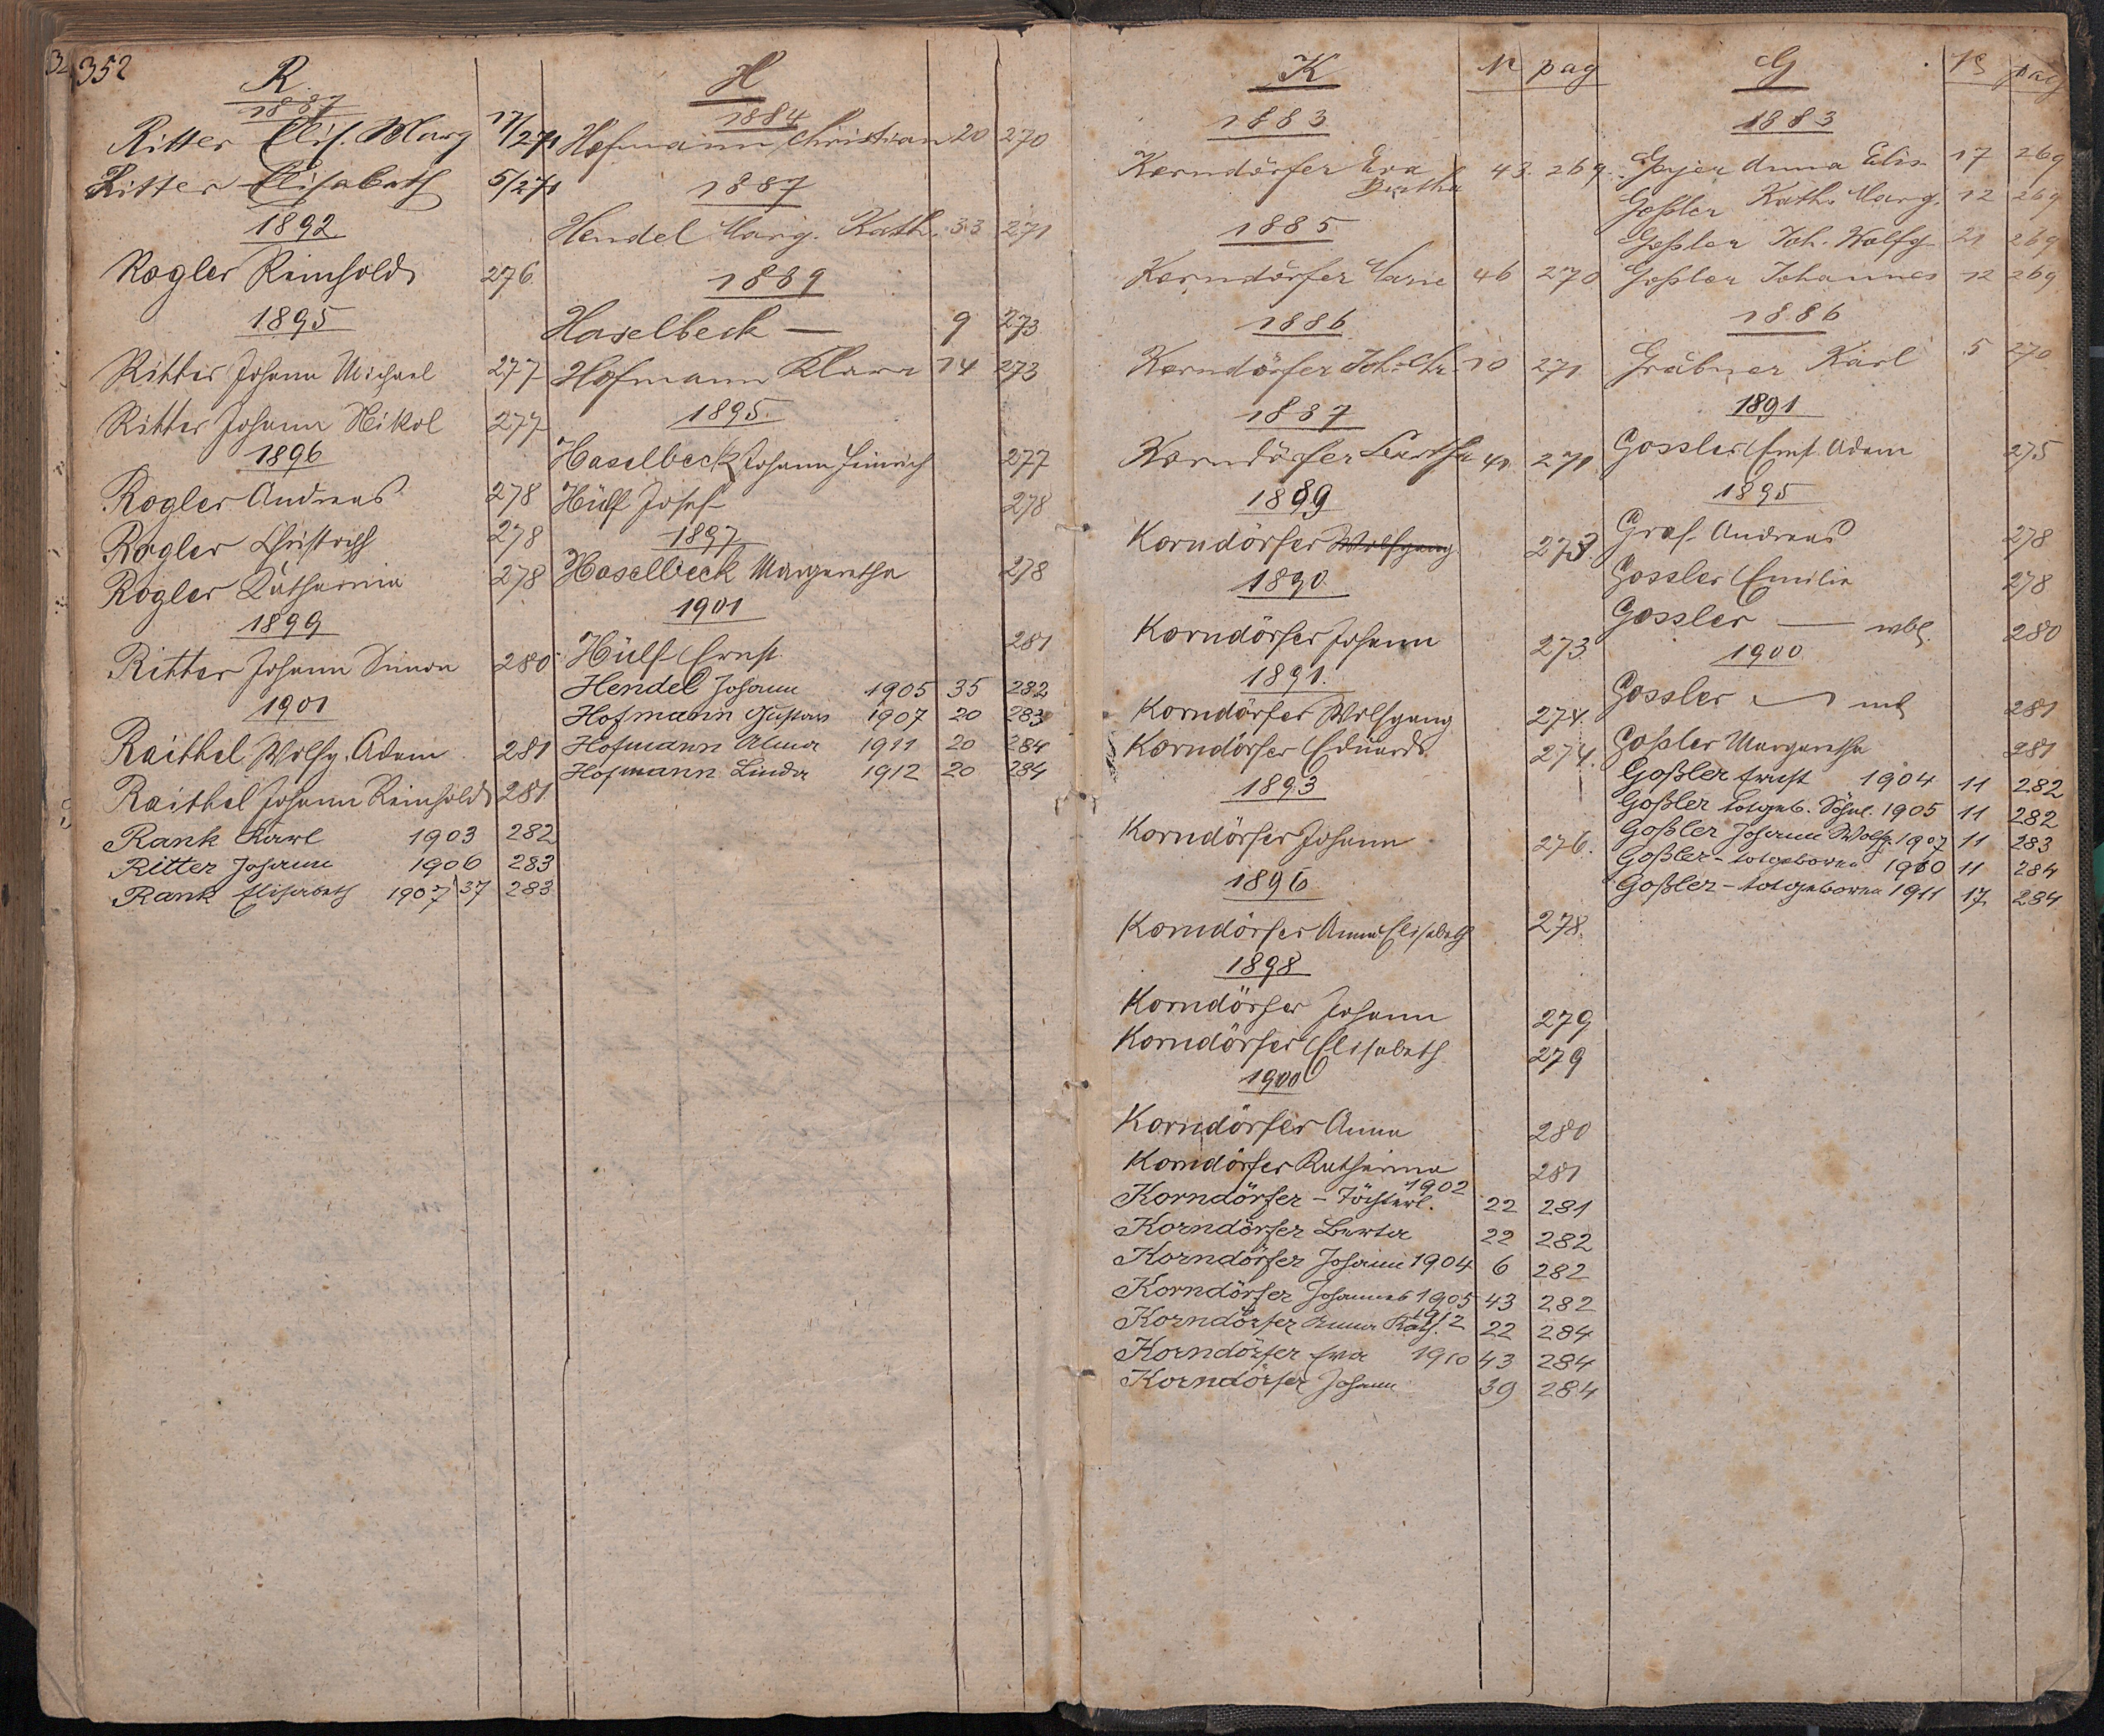 352
R
1887
Ritter Elis. Marg 17/271
Ritter Elisabeth 5/271
1892
Rogler Reinhold 276
1895
Ritter Johann Michael 277
Ritter Johann Nikol 277
1896
Rogler Andreas 278
Rogler Christoph 278
Rogler Katharina 278
1899
Ritter Johann Simon 280
1901
Raithel Wolfg. Adam 281
Raithel Johann Reinhold 281
Rank Karl 1903 282
Ritter Johann 1906 283
Rank Elisabeth 1907 37 283
H
1884
Hofmann Christian 20 270
1887
Hendel Marg. Kath. 33 271
1889
Haselbeck — 9 273
Hofmann Klara 14 273
1895
Haselbeck Johann Heinrich 277
Hülf Josef 278
1897
Haselbeck Margaretha 278
1901
Hülf Ernst 281
Hendel Johann 1905 35 282
Hofmann Gustav 1907 20 283
Hofmann Alma 1911 20 284
Hofmann Linda 1912 20 284
K N pag
1883
Korndörfer Eva Bertha 43. 269.
1885
Korndörfer Marie 46 270
1886
Korndörfer Joh. Chr. 10 271
1887
Korndörfer Bertha 41 271
1889
Korndörfer Wolfgang 273
1890
Korndörfer Johann 273
1891.
Korndörfer Wolfgang 274.
Korndörfer Eduard 274.
1893
Korndörfer Johann 276.
1896
Korndörfer Anna Elisabeth 278.
1898
Korndörfer Johann 279
Korndörfer Elisabeth 279
1900
Korndörfer Anna 280
Korndörfer Katharina 281
Korndörfer – Töchterl. 1902 22 281
Korndörfer Berta 22 282
Korndörfer Johann 1904 6 282
Korndörfer Johannes 1905 43 282
Korndörfer Anna Kath. 1912 22 284
Korndörfer Eva 1910 43 284
Korndörfer Johann 39 284
G N pag
1883
Geyer Anna Elis. 17 269
Goßler Kath. Marg. 12 269
Goßler Joh. Wolfg 21 269
Goßler Johannes 12 269
1886
Gräbner Karl 5 270
1891
Gossler Ernst Adam 275
1895
Graf Andreas 278
Gossler Emilie 278
Gossler — wbl. 280
1900
Gossler ml 281
Goßler Margaretha 281
Goßler Ernst 1904 11 282
Goßler totgeb. Söhnl. 1905 11 282
Goßler Johann Wolfg. 1907 11 283
Goßler – totgeboren 1910 11 284
Goßler – totgeboren 1911 17 284